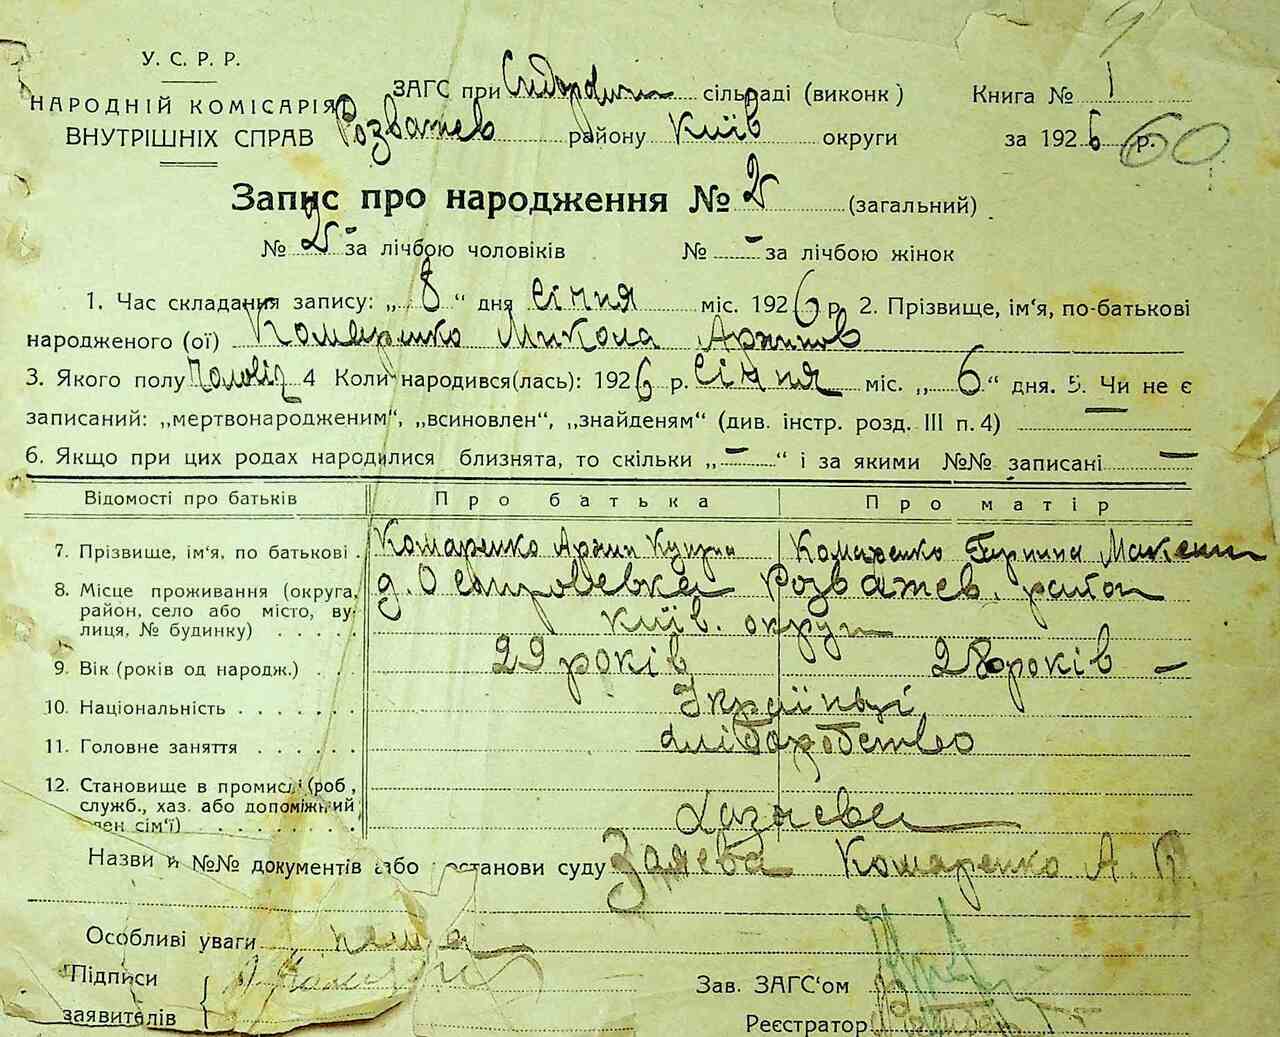 У. С. Р. Р.
НАРОДНІЙ КОМІСАРІЯТ
ВНУТРІШНІХ СПРАВ
ЗАГС при сільраді (виконк)
Розважев району Київ округи
Книга № 1
за 1926 р. 60
Запис про народження № 2 (загальний)
№ 2 за лічбою чоловіків № - за лічбою жінок
1. Час складання запису: „ 8 “ дня січня міс. 1926 р. 2. Прізвище, ім‘я, по-батькові
народженого (ої) Комаренко Микола Архипов
3. Якого полу 4 Коли народився(лась): 1926 р. Січня міс. „ 6 “ дня. 5. Чи не є
записаний: „мертвонародженим“, „всиновлен“, „знайденям“ (див. інстр. розд. III п. 4)
6. Якщо при цих родах народилися близнята, то скільки „ - “ і за якими №№ записані -
Відомості про батьків Про батька Про матір
7. Прізвище, ім‘я, по батькові Комаренко Архип Комаренко
8. Місце проживання (округа, район, село або місто, вулиця, № будинку) Розважев. район
Київ. округи
9. Вік (років од народж.) 29 років 28 років -
10. Національність Українці
11. Головне заняття хліборобство
12. Становище в промислі (роб, служб., хаз. або допоміжний член сім‘ї)
Назви й №№ документів або постанови суду Заява Комаренко А.
Особливі уваги нема
Підписи
заявителів
Зав. ЗАГС‘ом
Реєстратор